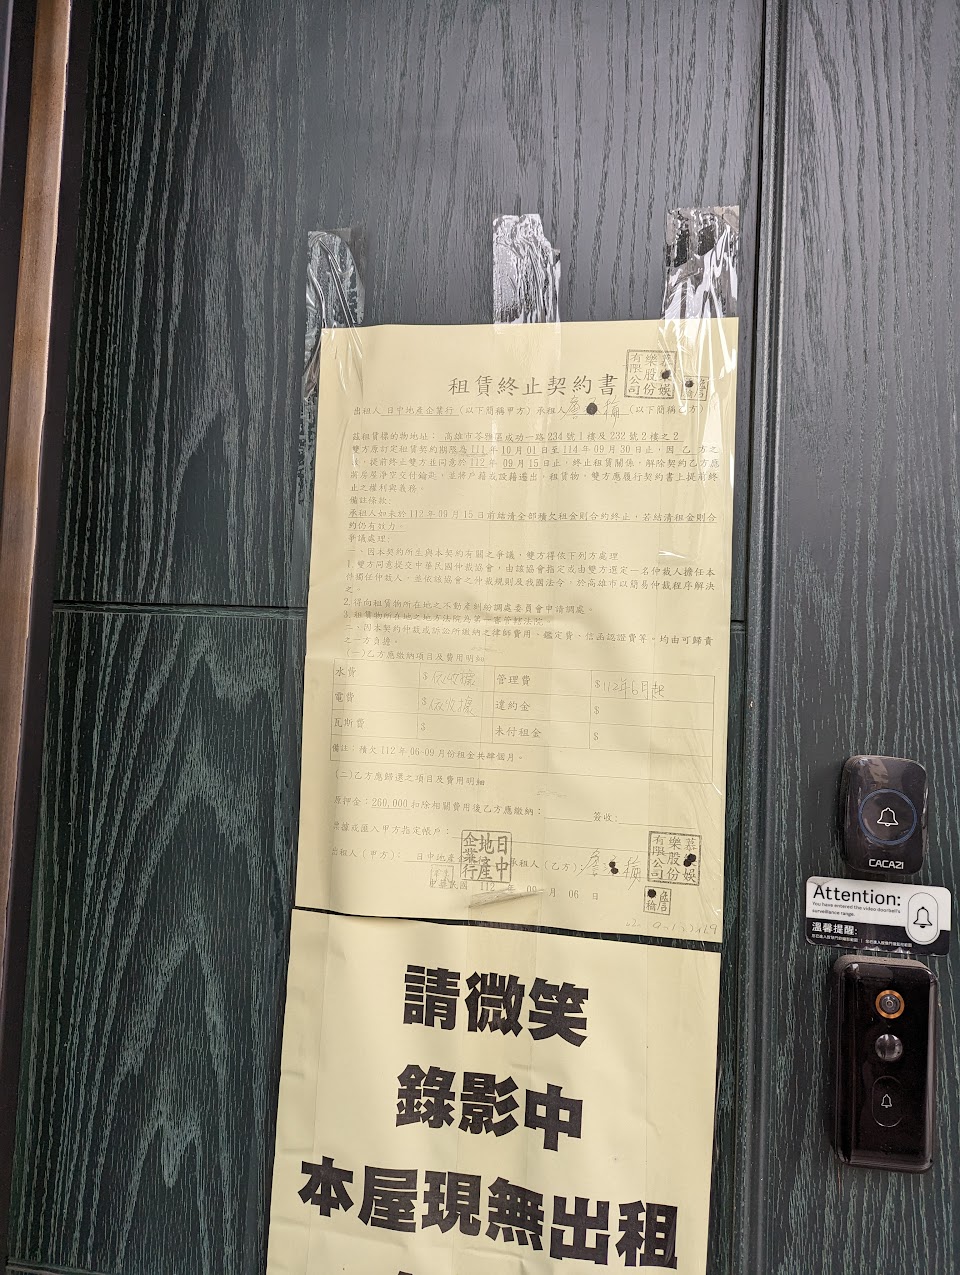 租賃終止契約書
出租人 日中地產企業行（以下簡稱甲方）承租人（以下簡稱乙方）
茲租賃標的物地址：高雄市苓雅區成功一路234號1樓及232號2樓之2
雙方原訂定租賃契約期限為111年10月01日至114年09月30日止，因乙方之
，提前終止雙方並同意於112年09月15日止，終止租賃關係，解除契約乙方應
將房屋淨空交付鑰匙，並將戶籍或設籍遷出，租賃物，雙方應履行契約書上提前終
止之權利與義務。
備註條款：
承租人如未於112年09月15日前結清全部積欠租金則合約終止，若結清租金則合
約仍有效力。
爭議處理：
一、因本契約所生與本契約有關之爭議，雙方得依下列方處理
1.雙方同意提交中華民國仲裁協會，由該協會指定或由雙方選定一名仲裁人擔任本
件獨任仲裁人，並依該協會之仲裁規則及我國法令，於高雄市以簡易仲裁程序解決
之。
2.得向租賃物所在地之不動產糾紛調處委員會申請調處。
3.租賃物所在地之地方法院為第一審管轄法院。
二、因本契約仲裁或訴訟所繳納之律師費用、鑑定費、信函認證費等。均由可歸責
之一方負擔。
(一)乙方應繳納項目及費用明細
水費 $依收據 管理費 $112年6月起
電費 $依收據 違約金 $
瓦斯費 $ 未付租金 $
備註：積欠112年06-09月份租金共肆個月。
(二)乙方應歸還之項目及費用明細
原押金：260,000扣除相關費用後乙方應繳納： 簽收：
票據或匯入甲方指定帳戶：
出租人（甲方）： 日中地產企業行 承租人（乙方）：
日中地產企業行
中華民國 112 年 09 月 06 日
請微笑
錄影中
本屋現無出租
CACAZI
Attention:
You have entered the video doorbell's
surveillance range.
溫馨提醒: